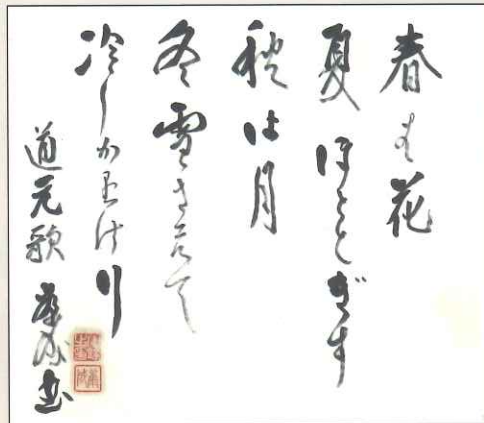 春は花
夏ほととぎす
秋は月
冬雪さえて
冷しかりけり
道元歌